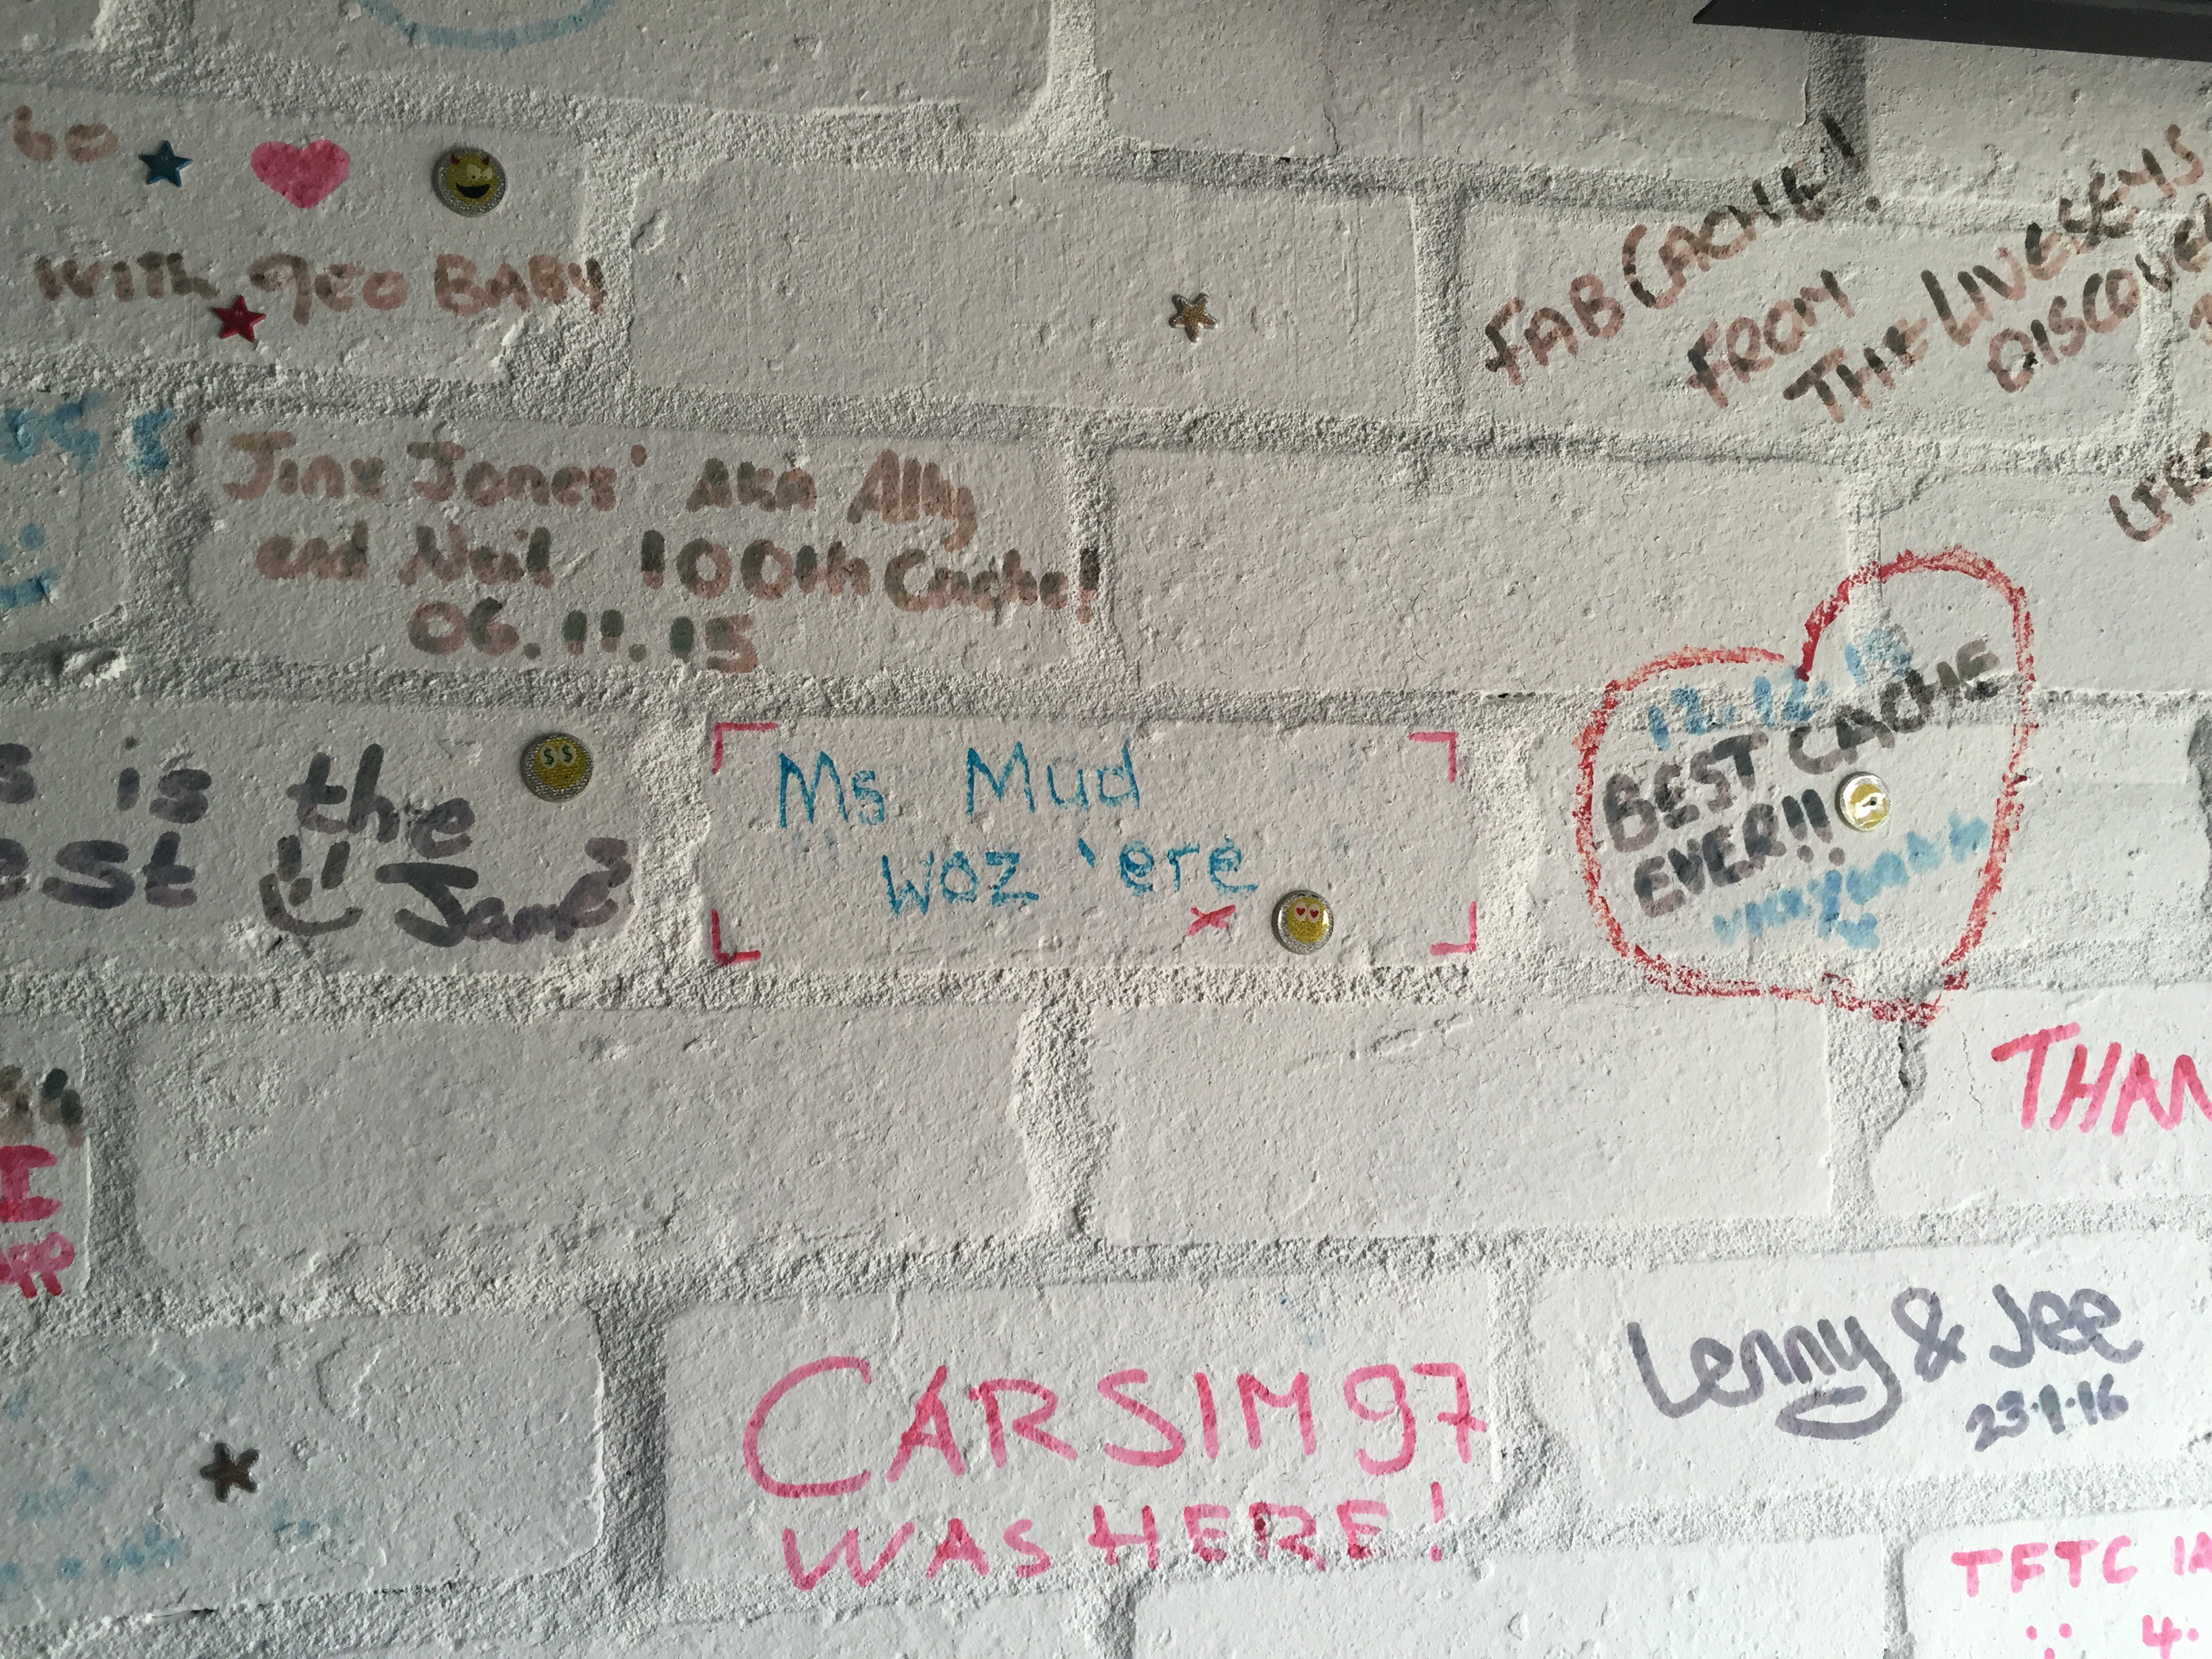 WITH GEO BABY
FAB CACHE!
FROM
THE LIVESEYS
Jinx Jones' AKA Ally
and Neil 100th Cache!
06.11.15
is the
Jame
Ms Mud
WOZ 'ere
x
12.12.15
BEST CACHE
EVER!!
THAN
CARSIM97
WAS HERE!
Lenny & Jee
23.1.16
TFTC